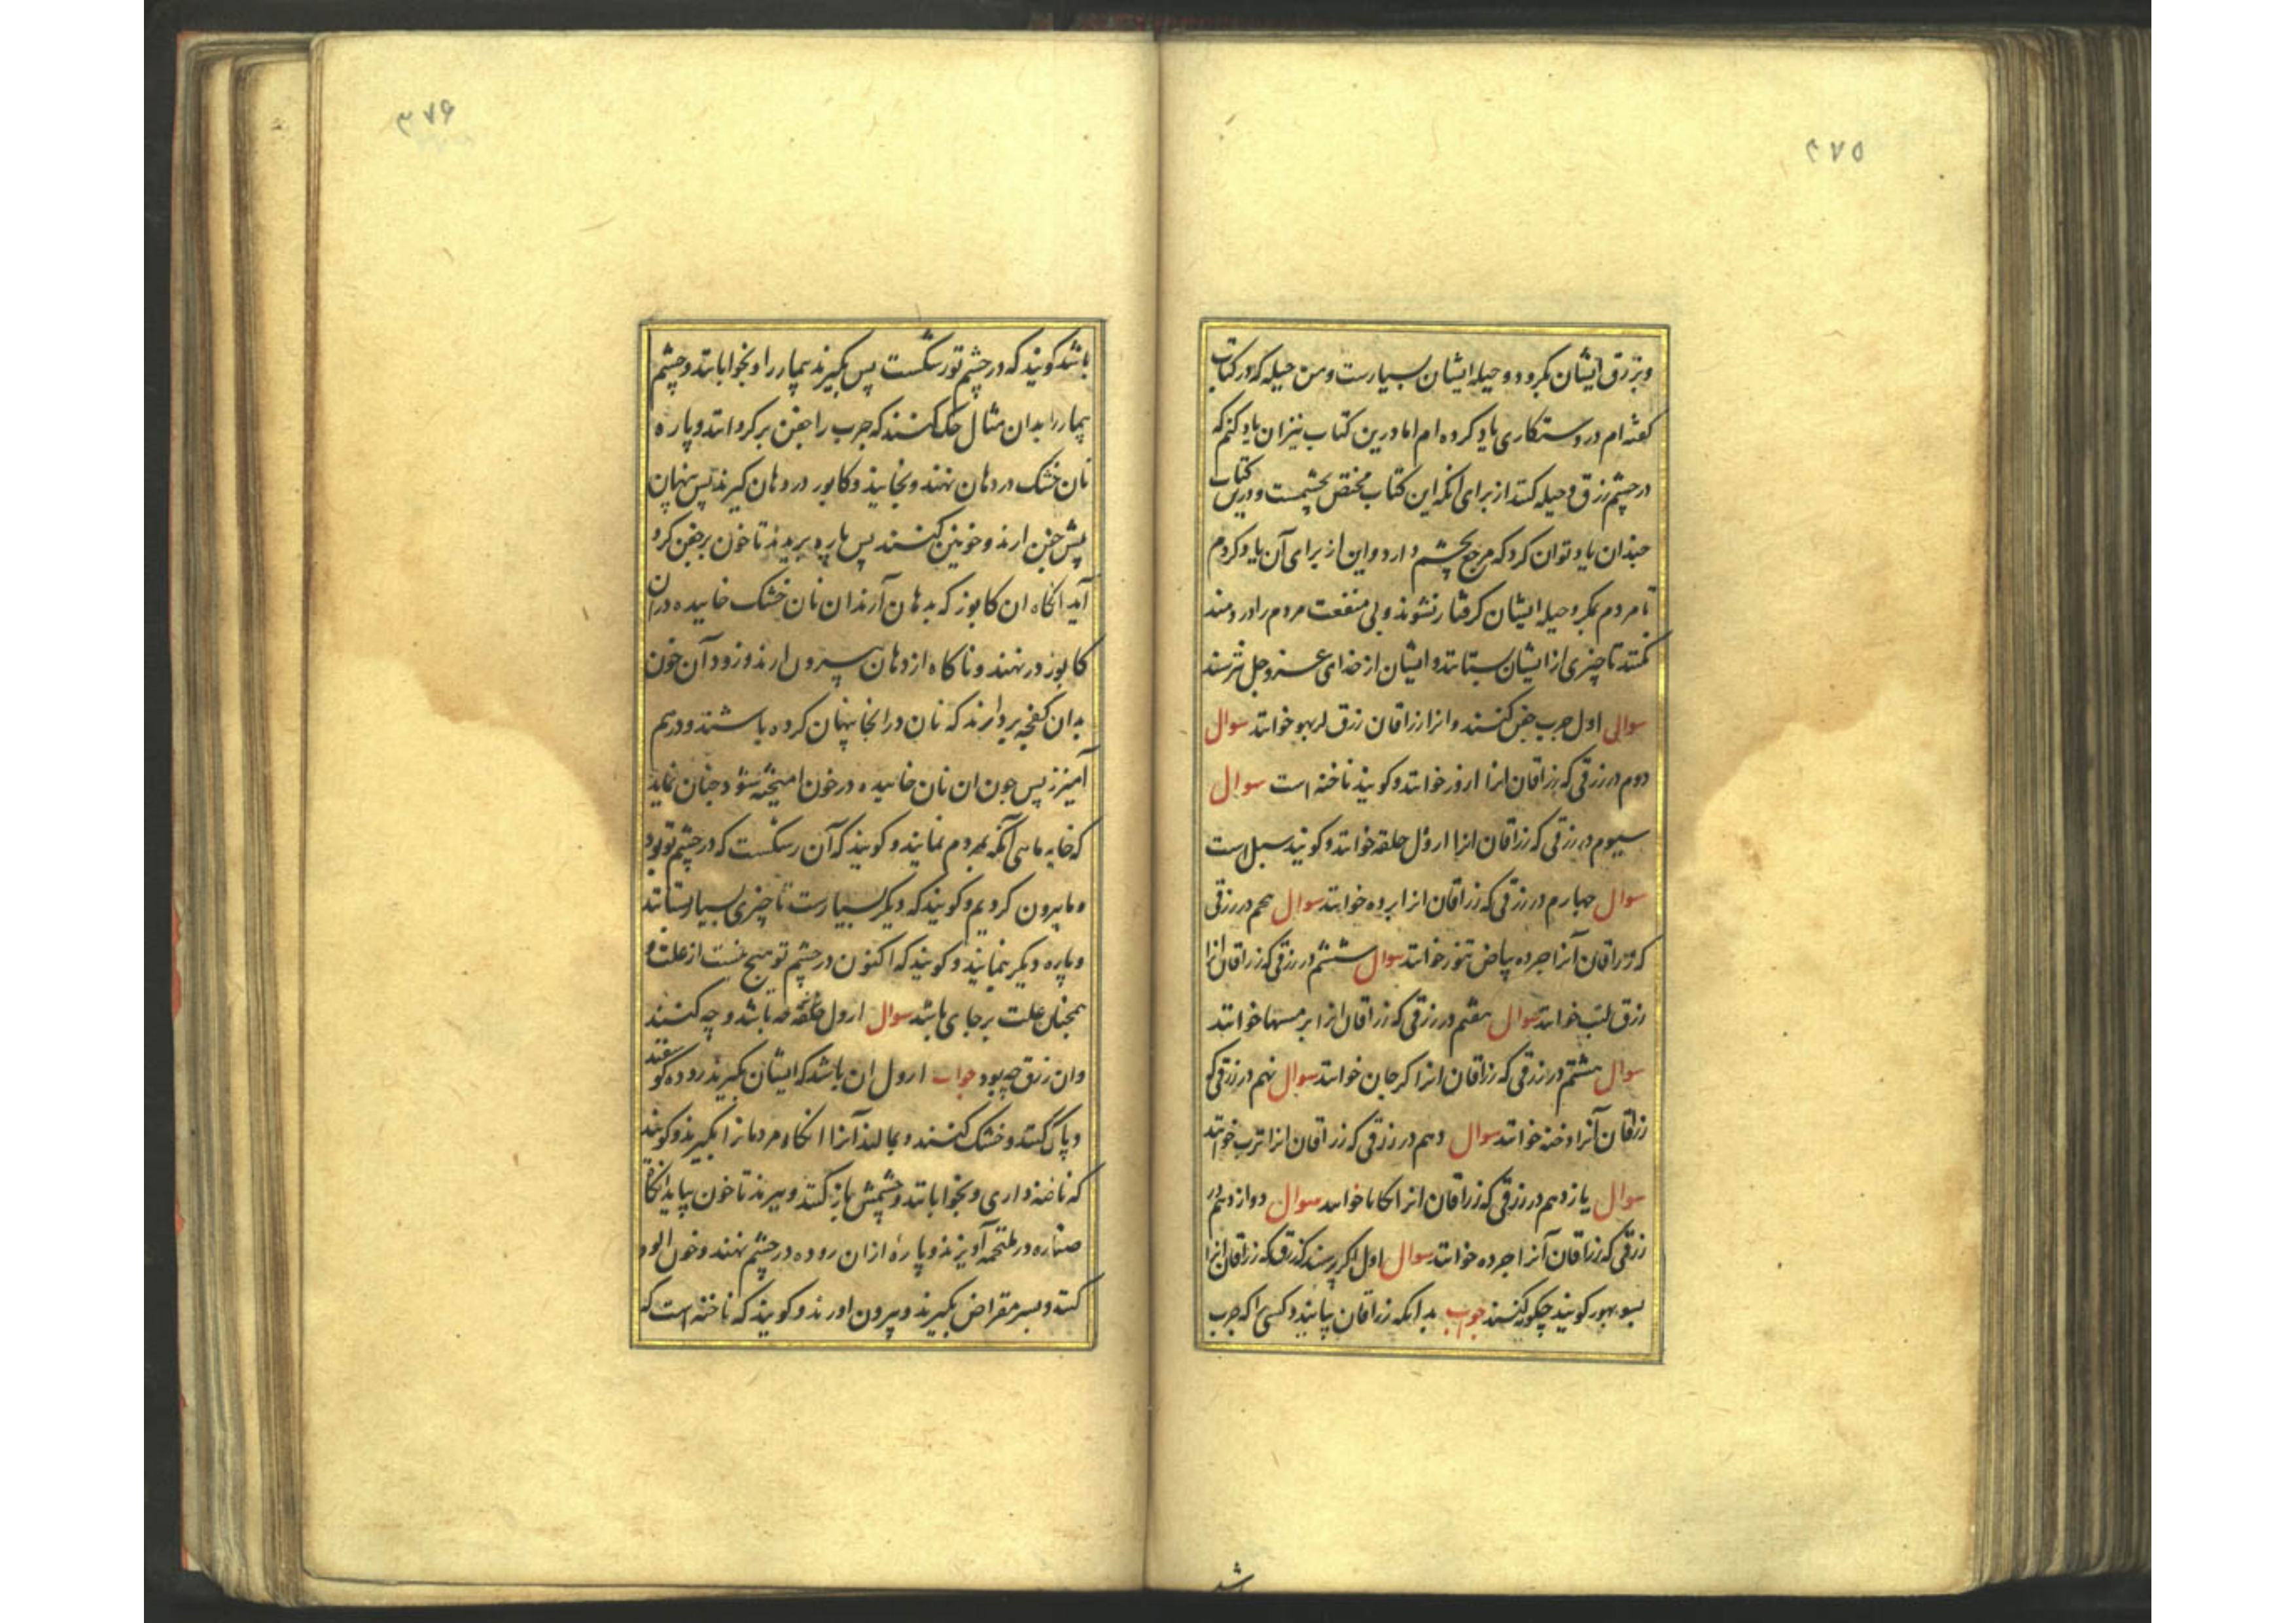 ۳۷۵
و بزرق ایشان نکرود و حیله ایشان بسیارست و من حیله که در کتاب
کفته ام در دستکاری یاد کرده ام اما درین کتاب نیز ان یاد کنم که
در چشم زرق و حیله کنند از برای انکه این کتاب مختص بچشمست و درین کتاب
چندان یاد توان کرد که مرجع بچشم دارد و این از برای آن یاد کردم
تا مردم بمکر و حیله ایشان کرفتار نشوند و بی منفعت مردم را دردمند
نکنند تا چیزی از ایشان بستانند و ایشان از خدای عز و جل نترسند
سوال اول جرب جفن کنند و انرا زراقان زرق خوانند سوال
دوم در زرقی که زراقان انرا ارور خوانند و کویند ناخنه است سوال
سیوم در زرقی که زراقان انرا ارول حلقه خوانند و کویند سبل است
سوال چهارم در زرقی که زراقان انرا برده خوانند سوال پنجم در زرقی
که زراقان آنرا جرده بیاض تنور خوانند سوال ششم در زرقی که زراقان انرا
زرق لتب خوانند سوال هفتم در زرقی که زراقان انرا بر مسها خوانند
سوال هشتم در زرقی که زراقان انرا کرجان خوانند سوال نهم در زرقی که
زراقان آنرا وخنه خوانند سوال دهم در زرقی که زراقان انرا ترب خوانند
سوال یازدهم در زرقی که زراقان انرا کاناخوانند سوال دوازدهم در
زرقی که زراقان آنرا جرده خوانند سوال اول اکر پرسند که زرقی که زراقان انرا
کویند چکونه کنند جواب بدانکه زراقان بیایند و کسی را که جرب
۳۷۶
باشد کویند که در چشم تو رشکست پس بکیرند بیمار را و بخوابانند و چشم
بیمار را بدان مثال حک کنند که جرب را جفن برکردانند و پاره
نان خشک در دهان نهند و بخایند و کابوز در دهان کیرند پس پنهان
پیش جفن ارند و خونین کنند پس پاره ببرند تا خون بر جفن کرد
آید انکاه ان کابوز که بدهان آرند ان نان خشک خاییده در ان
کابوز در نهند و ناکاه از دهان بیرون ارند و زود آن خون
بدان کفچه بردارند که نان در انجا پنهان کرده باشند و درهم
آمیزند پس چون ان نان خاییده در خون امیخته شود چنان نماید
که خایه ماهی انکه بمردم نمایند و کویند که آن رشکست که در چشم تو بود
و ما بیرون کردیم و کویند که دیکر بسیارست تا چیزی بسیار بستانند
و پاره دیکر بنمایند و کویند که اکنون در چشم تو هیچ نیست از علت و
همچنان علت بر جای باشد سوال ارول حلقه چه باشد و چه کنند
وان زرق چه بود جواب ارول ان باشد که ایشان بکیرند روده کوسفند
و پاک کنند و خشک کنند و بمالند آنرا انکاه مردمانرا بکیرند و کویند
که ناخنه داری و بخوابانند و چشمش باز کنند و ببرند تا خون بیاید انکاه
صناره در ملتحمه آویزند و پارۀ ازان روده در چشم نهند و خون الود
کنند و بسر مقراض بکیرند و بیرون اورند و کویند که ناخنه است که